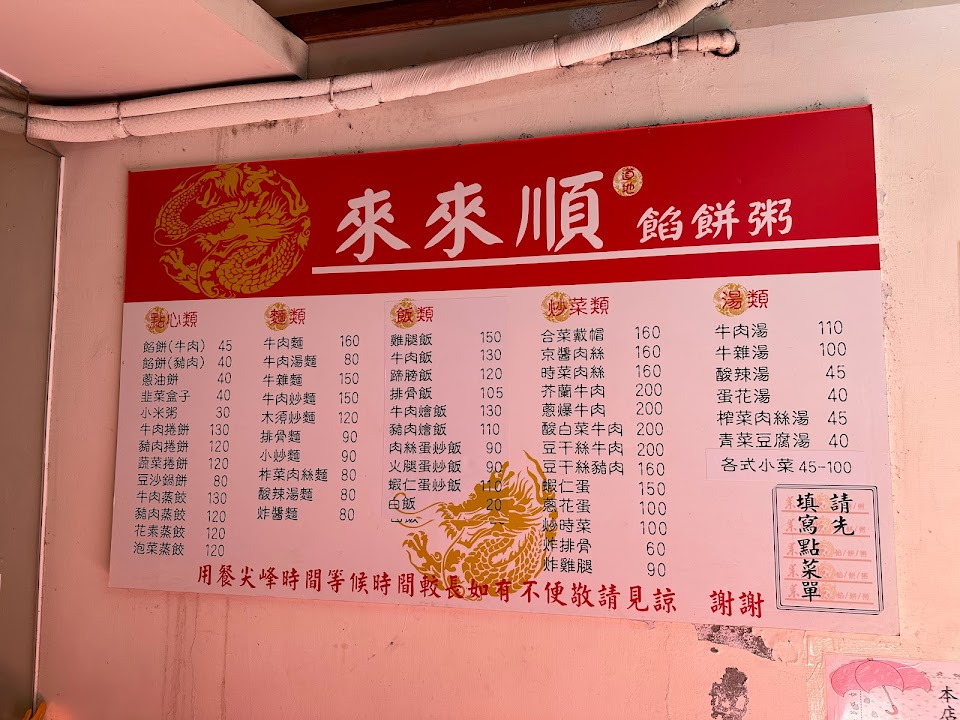 來來順 道地 餡餅粥
點心類
餡餅(牛肉) 45
餡餅(豬肉) 40
蔥油餅 40
韭菜盒子 40
小米粥 30
牛肉捲餅 130
豬肉捲餅 120
蔬菜捲餅 120
豆沙鍋餅 80
牛肉蒸餃 130
豬肉蒸餃 120
花素蒸餃 120
泡菜蒸餃 120
麵類
牛肉麵 160
牛肉湯麵 80
牛雜麵 150
牛肉炒麵 150
木須炒麵 120
排骨麵 90
小炒麵 90
柞菜肉絲麵 80
酸辣湯麵 80
炸醬麵 80
飯類
雞腿飯 150
牛肉飯 130
蹄膀飯 120
排骨飯 105
牛肉燴飯 130
豬肉燴飯 110
肉絲蛋炒飯 90
火腿蛋炒飯 90
蝦仁蛋炒飯 110
白飯 20
炒菜類
合菜戴帽 160
京醬肉絲 160
時菜肉絲 160
芥蘭牛肉 200
蔥爆牛肉 200
酸白菜牛肉 200
豆干絲牛肉 200
豆干絲豬肉 160
蝦仁蛋 150
蔥花蛋 100
炒時菜 100
炸排骨 60
炸雞腿 90
湯類
牛肉湯 110
牛雜湯 100
酸辣湯 45
蛋花湯 40
榨菜肉絲湯 45
青菜豆腐湯 40
各式小菜 45-100
請先
填寫點菜單
用餐尖峰時間等候時間較長如有不便敬請見諒 謝謝
本店